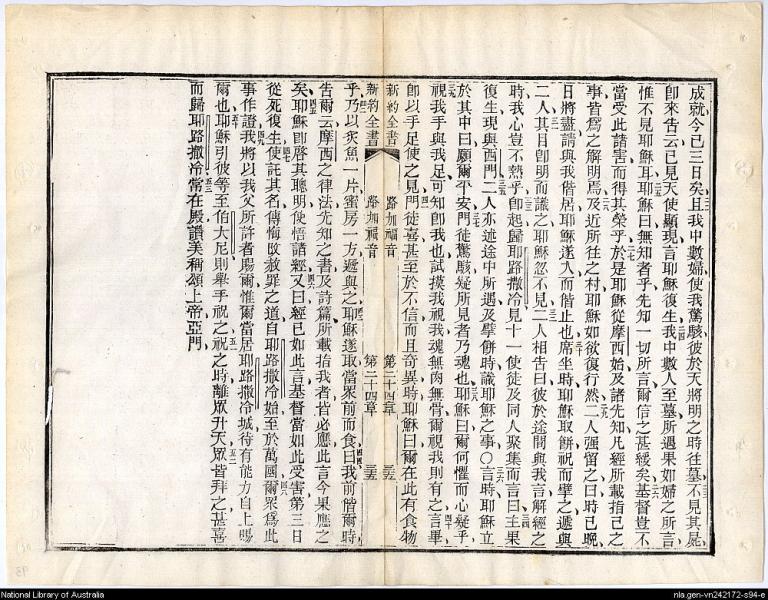 成就今已三日矣且我中數婦使我驚駭彼於天將明之時往墓不見其屍
卽來吿云已見天使顯現言耶穌復生我中數人至墓所遇果如婦之所言
惟不見耶穌耳耶穌曰無知者乎先知一切所言爾信之甚緩矣基督豈不
當受此諸害而得其榮乎於是耶穌從摩西始及諸先知凡經所載指己之
事皆爲之解明焉及近所往之村耶穌如欲復行然二人强留之曰時已晚
日將盡請與我偕居耶穌遂入而偕止也席坐時耶穌取餅祝而擘之遞與
二人其目卽明而識之耶穌忽不見二人相吿曰彼於途間與我言解經之
時我心豈不熱乎卽起歸耶路撒冷見十一使徒及同人聚集而言曰主果
復生現與西門二人亦述途中所遇及擘餅時識耶穌之事〇言時耶穌立
於其中曰願爾平安門徒驚駭疑所見者乃魂也耶穌曰爾何懼而心疑乎
視我手與我足可知卽我也試摸我視我魂無肉無骨爾視我則有之言畢
卽以手足使之見門徒喜甚至於不信而且奇異時耶穌曰爾在此有食物
新約全書 路加福音 第二十四章
新約全書 路加福音 第二十四章
乎乃以炙魚一片蜜房一方遞與之耶穌遂取當眾前而食曰我前偕爾時
吿爾云摩西之律法先知之書及詩篇所載指我者皆必應此言今果應之
矣耶穌卽啓其聰明使悟諸經又曰經已如此言基督當如此受害第三日
從死復生使託其名傳悔改赦罪之道自耶路撒冷始至於萬國爾眾爲此
事作證我將以我父所許者賜爾惟爾當居耶路撒冷城待有能方自上賜
爾也耶穌引彼等至伯大尼則舉手祝之祝之時離眾升天眾皆拜之甚喜
而歸耶路撒冷常在殿讚美稱頌上帝亞門
National Library of Australia
nla.gen-vn242172-s94-e